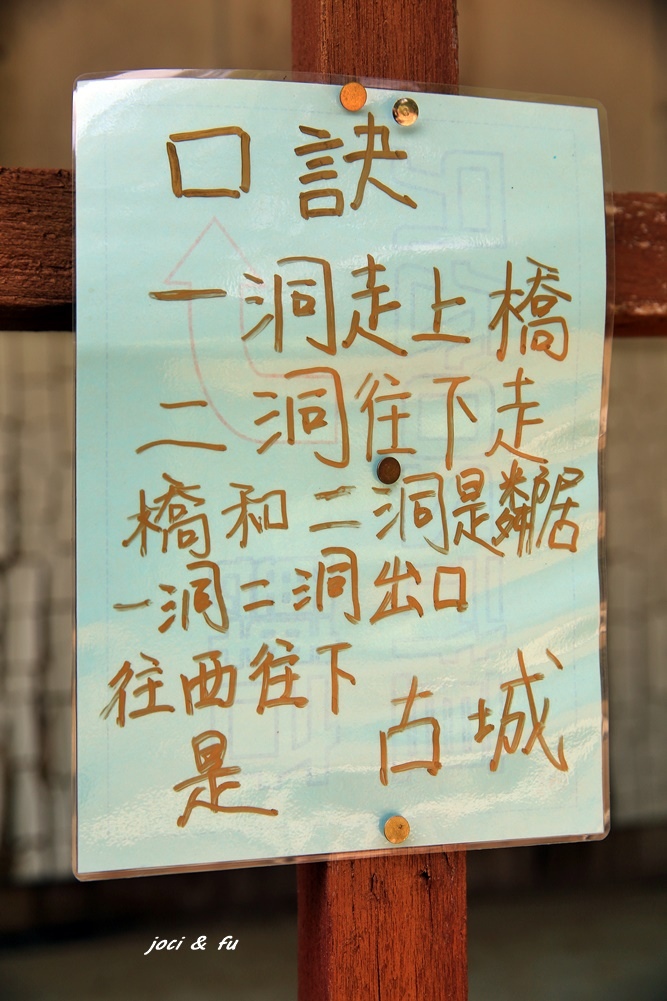 口訣
一洞走上橋
二洞往下走
橋和二洞是鄰居
一洞二洞出口
往西往下
是 古城
joci & fu